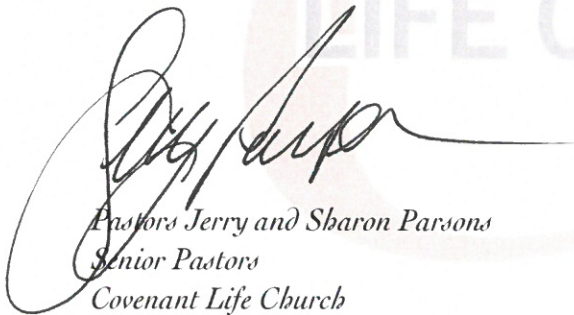 LIFE C
Jerry Parsons
Pastors Jerry and Sharon Parsons
Senior Pastors
Covenant Life Church